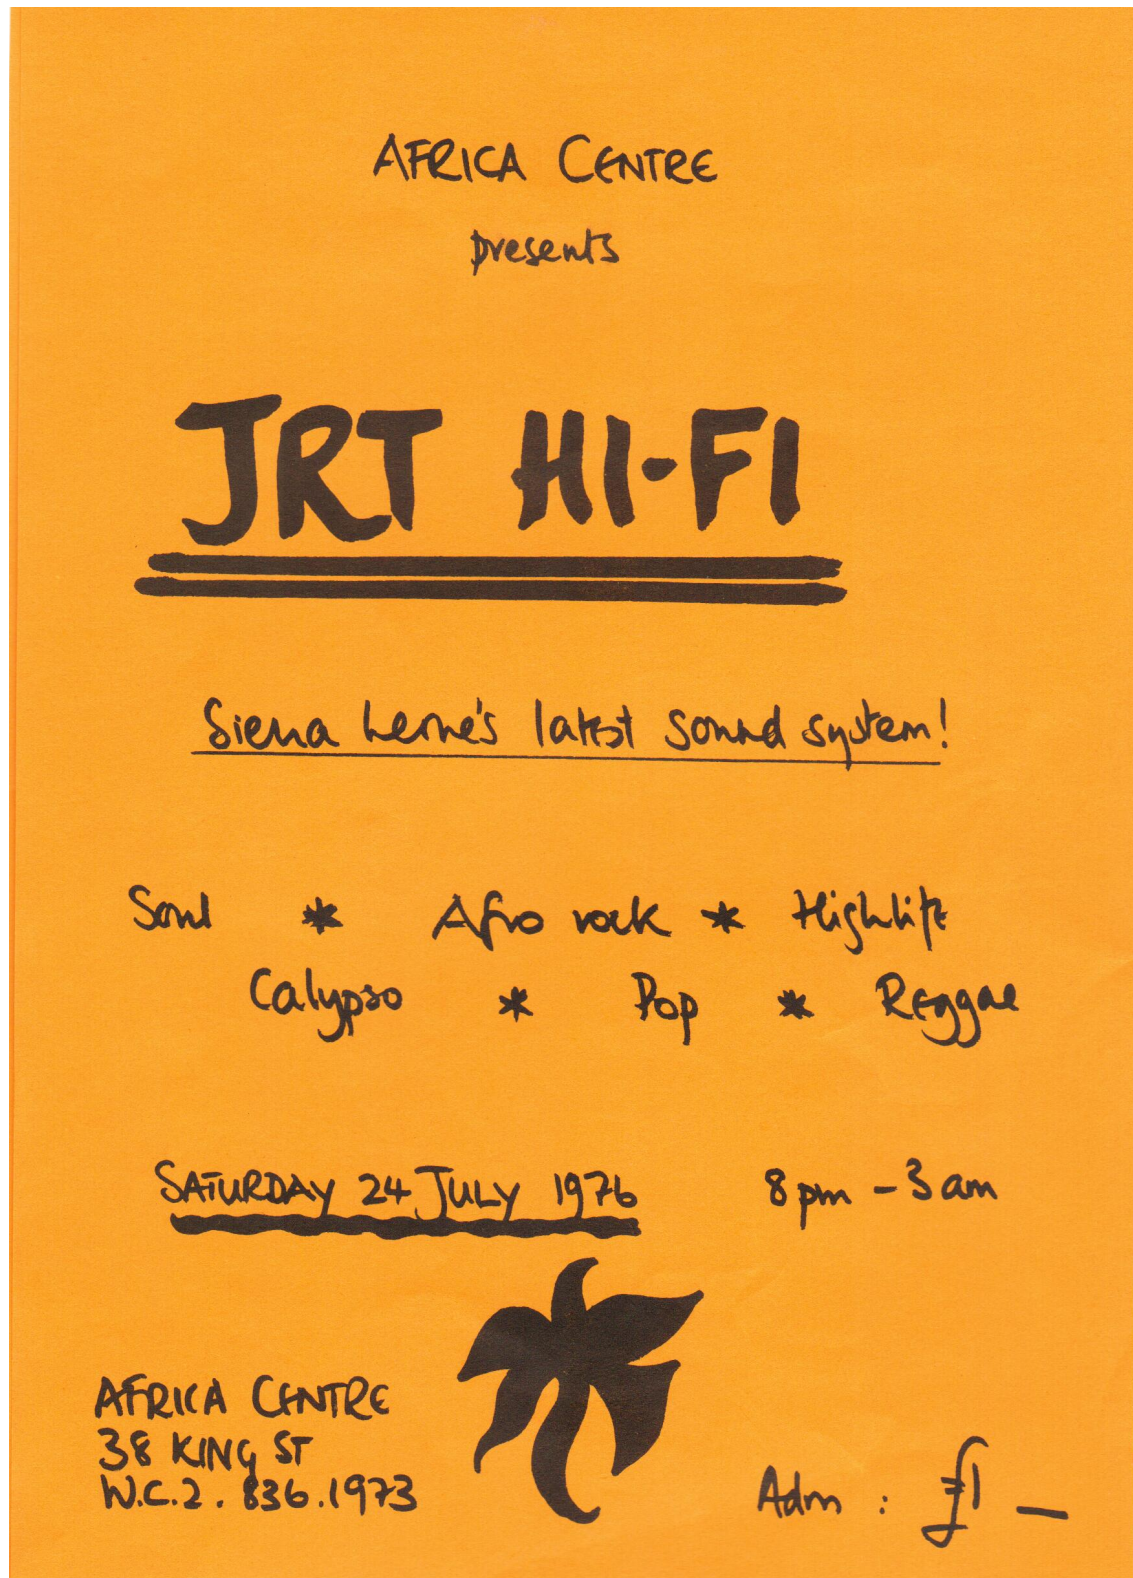 AFRICA CENTRE
presents
JRT HI-FI
Sierra Leone's latest sound system!
Soul * Afro rock * Highlife
Calypso * Pop * Reggae
SATURDAY 24 JULY 1976 8pm - 3am
AFRICA CENTRE
38 KING ST
W.C.2. 836.1973
Adm : £1 —